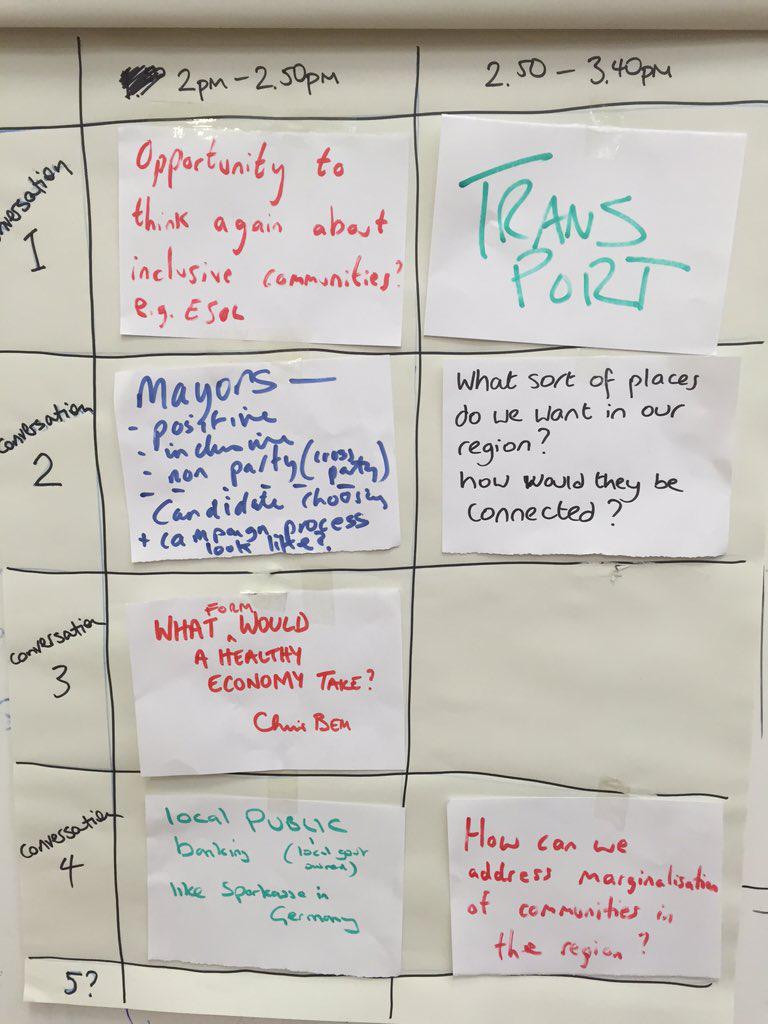 2pm - 2.50pm
2.50 - 3.40pm
Conversation
1
Opportunity to
think again about
inclusive communities?
e.g. ESOL
TRANS
PORT
Conversation
2
Mayors —
- positive
- inclusive
- non party (cross
party)
- Candidate choosing
+ campaign process
look like?
What sort of places
do we want in our
region?
how would they be
connected?
Conversation
3
FORM
WHAT ^ WOULD
A HEALTHY
ECONOMY TAKE?
Chris BEM
Conversation
4
local PUBLIC
banking (local govt
owned)
like Sparkasse in
Germany
How can we
address marginalisation
of communities in
the region?
5?